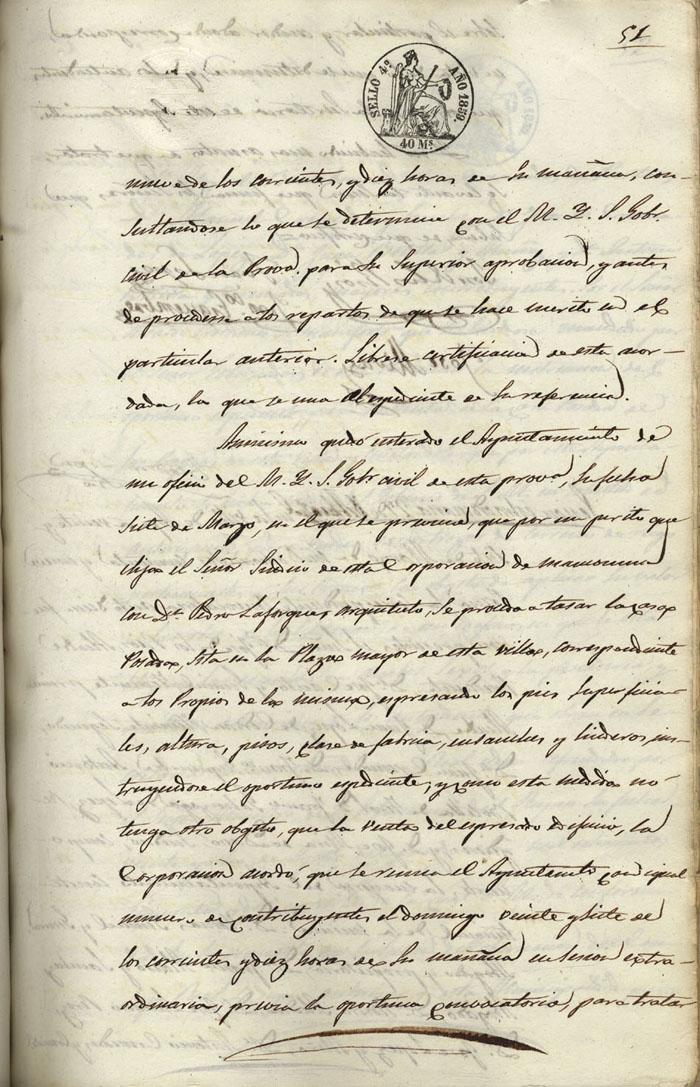 51
SELLO 4º AÑO 1859.
40 Ms.
nueve de los corrientes, y diez horas de su mañana, con-
sultandose lo que se determine con el M. Y. S. Gobr.
Civil de la Prova. para su Superior aprobacion, y antes
de procederse a los repartos de que se hace merito en el
particular anterior. Librese certificacion de esta acor-
dada, la que se una al espediente de su referencia.
Asimismo quedó enterado el Ayuntamiento de
un oficio del M. Y. S. Gobr. civil de esta prova, su fecha
siete de Marzo, en el que se previene, que por un perito que
elija el Señor Sindico de esta Corporacion de mancomun
con Dn. Pedro Laforgue, arquitecto, se proceda a tasar la casa
Posada, sita en la Plaza mayor de esta villa, correspondiente
a los Propios de la misma, espresando los pies superficia-
les, altura, pisos, clase de fabrica, ensanches y linderos, ins-
truyendose el oportuno espediente; y como esta medida no
tenga otro objeto, que la venta del espresado edificio, la
Corporacion acordó, que se reuna el Ayuntamto. con igual
numero de contribuyentes el domingo veinte y siete de
los corrientes y diez horas de su mañana en sesion extra-
ordinaria, previa la oportuna convocatoria, para tratar